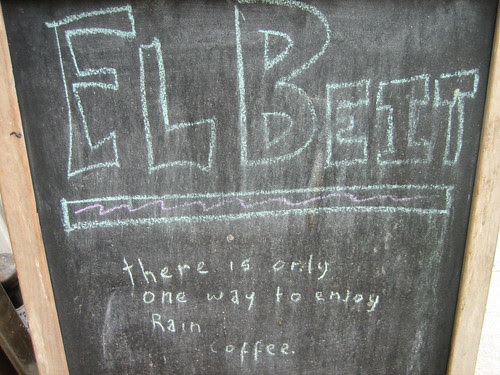 EL BEIT
there is only
one way to enjoy
Rain
coffee.